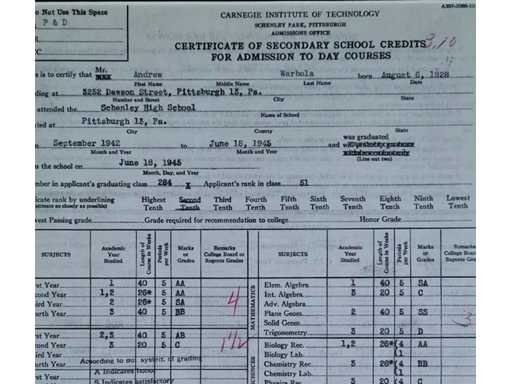 Do Not Use This Space
P & D
CARNEGIE INSTITUTE OF TECHNOLOGY
SCHENLEY PARK, PITTSBURGH
ADMISSIONS OFFICE
CERTIFICATE OF SECONDARY SCHOOL CREDITS
FOR ADMISSION TO DAY COURSES
3,10
is to certify that Mr. Andrew Warhola born August 6, 1928
First Name Middle Name Last Name
ding at 3252 Dawson Street, Pittsburgh 13, Pa.
Number and Street City State
attended the Schenley High School
Name of School
ted at Pittsburgh 13, Pa.
City County State
September 1942 to June 18, 1945 was graduated
Month and Year Month and Year (Line out two)
the school on June 18, 1945
Month, Day, and Year
mber in applicant's graduating class 284 Applicant's rank in class 51
dicate rank by underlining Highest Second Third Fourth Fifth Sixth Seventh Eighth Ninth Lowest
Tenth Tenth Tenth Tenth Tenth Tenth Tenth Tenth Tenth Tenth
west Passing grade Grade required for recommendation to college Honor Grade
SUBJECTS Academic Year Studied Length of Course in Weeks Periods per Week Marks or Grades Remarks College Board or Regents Grades SUBJECTS Academic Year Studied Length of Course in Weeks Periods per Week Marks or Grades Remarks College Board or Regents Grades
MATHEMATICS
rst Year 1 40 5 AA Elem. Algebra 1 40 5 SA
cond Year 1,2 26* 5 AA Int. Algebra 3 20 5 C
ird Year 2 26* 5 SA Adv. Algebra
urth Year 3 40 5 BB 4 Plane Geom. 2 40 5 SS
Solid Geom 3
Trigonometry 3 20 5 D
rst Year 2,3 40 5 AB Biology Rec. 1,2 26* (4 AA
cond Year 3 20 5 C 1½ Biology Lab. (1
ird Year Chemistry Rec. 3 26* (4 BB
According to our system of grading
urth Year Chemistry Lab. (1
A Indicates honor
S Indicates satisfactory Physics Rec. 3 20 (4 C